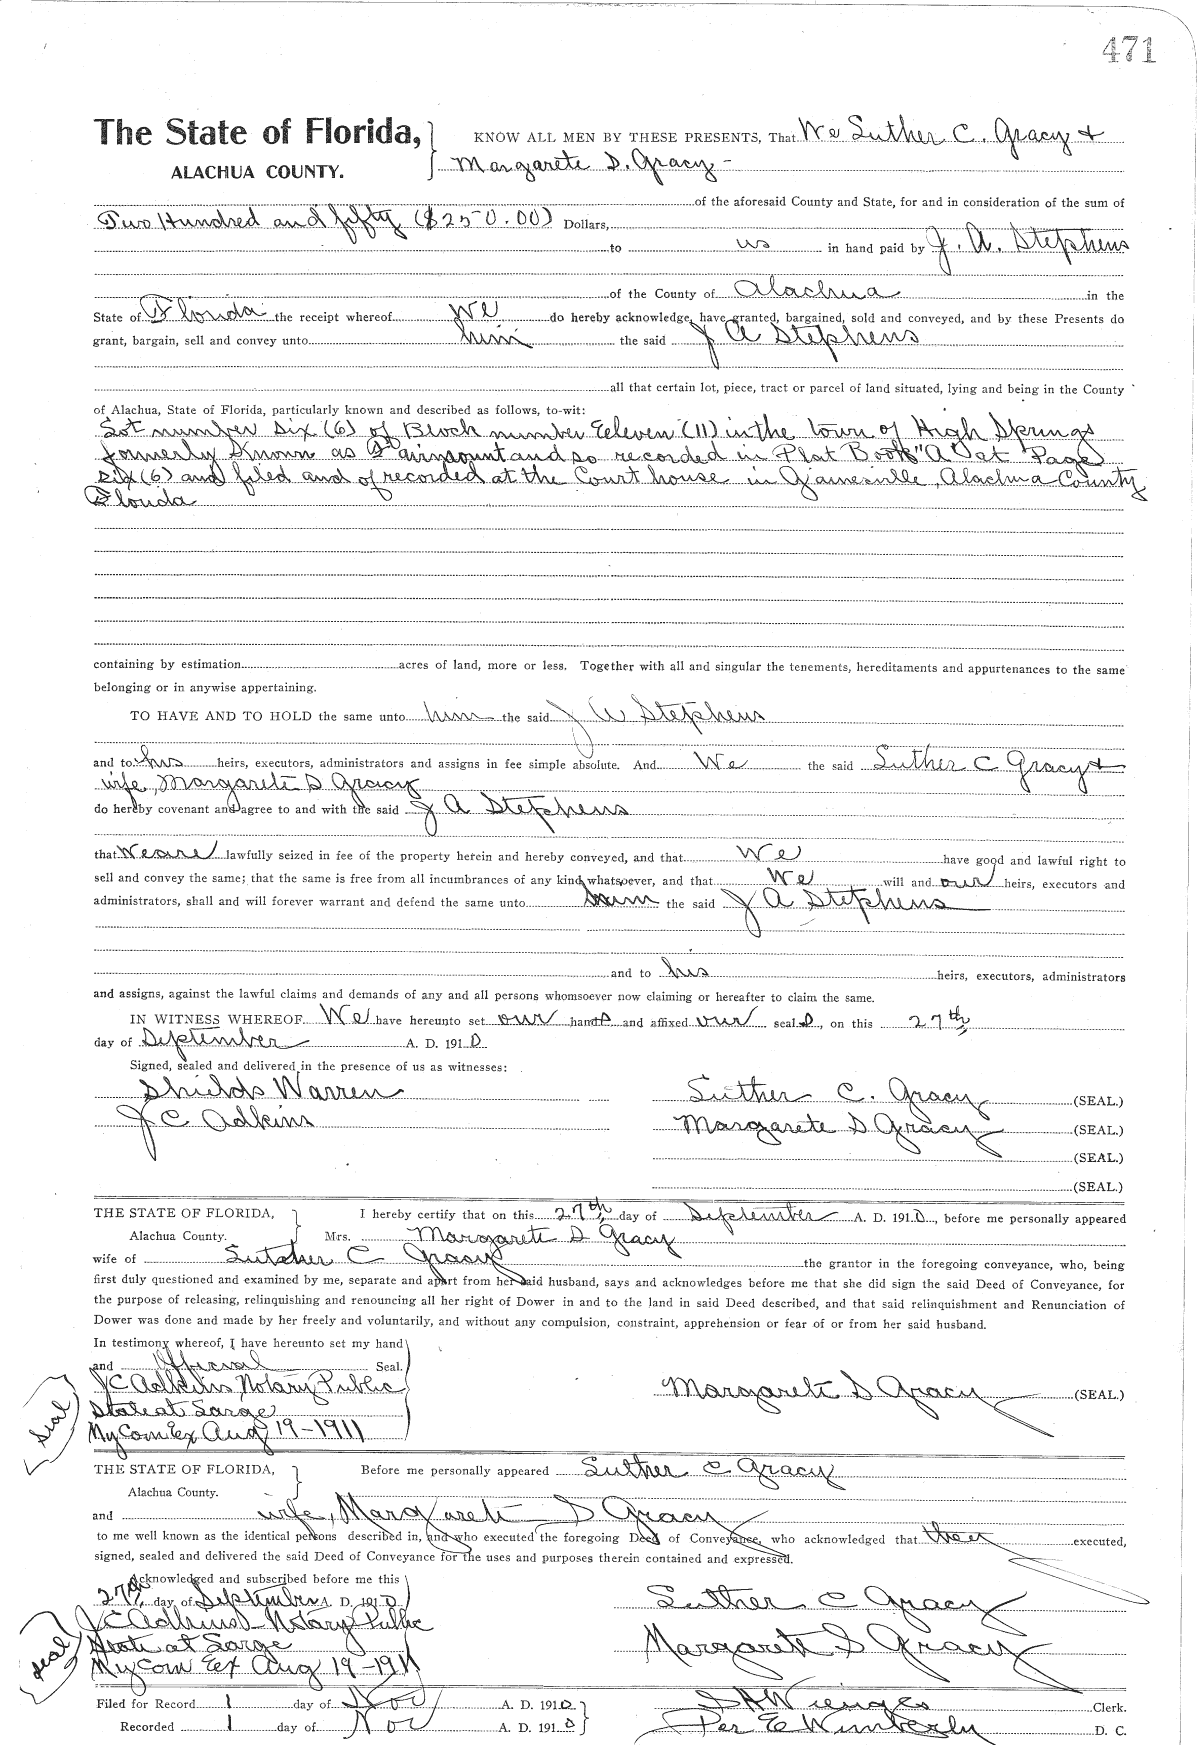 471
The State of Florida, KNOW ALL MEN BY THESE PRESENTS, That We Luther C. Gracy +
ALACHUA COUNTY. Margarete D. Gracy -
of the aforesaid County and State, for and in consideration of the sum of
Two Hundred and fifty ($250.00) Dollars,
to us in hand paid by J. A. Stephens
of the County of Alachua in the
State of Florida the receipt whereof We do hereby acknowledge, have granted, bargained, sold and conveyed, and by these Presents do
grant, bargain, sell and convey unto him the said J A Stephens
all that certain lot, piece, tract or parcel of land situated, lying and being in the County
of Alachua, State of Florida, particularly known and described as follows, to-wit:
Lot number six (6) of Block number Eeleven (11) in the town of High Springs
formerly Known as Fairmount and so recorded in Plat Book "A" at Page
six (6) and filed and of recorded at the Court house in Gainesville, Alachua County
Florida
containing by estimation acres of land, more or less. Together with all and singular the tenements, hereditaments and appurtenances to the same
belonging or in anywise appertaining.
TO HAVE AND TO HOLD the same unto him the said J A Stephens
and to his heirs, executors, administrators and assigns in fee simple absolute. And We the said Luther C Gracy +
wife, Margarete D Gracy
do hereby covenant and agree to and with the said J A Stephens
that We are lawfully seized in fee of the property herein and hereby conveyed, and that We have good and lawful right to
sell and convey the same; that the same is free from all incumbrances of any kind whatsoever, and that We will and our heirs, executors and
administrators, shall and will forever warrant and defend the same unto him the said J A Stephens
and to his heirs, executors, administrators
and assigns, against the lawful claims and demands of any and all persons whomsoever now claiming or hereafter to claim the same.
IN WITNESS WHEREOF We have hereunto set our hands and affixed our seals, on this 27th
day of September A. D. 1910
Signed, sealed and delivered in the presence of us as witnesses:
Shields Warren Luther C. Gracy (SEAL.)
J C Adkins Margarete D Gracy (SEAL.)
(SEAL.)
(SEAL.)
THE STATE OF FLORIDA, I hereby certify that on this 27th day of September A. D. 1910, before me personally appeared
Alachua County. Mrs. Margarete D Gracy
wife of Luther C Gracy the grantor in the foregoing conveyance, who, being
first duly questioned and examined by me, separate and apart from her said husband, says and acknowledges before me that she did sign the said Deed of Conveyance, for
the purpose of releasing, relinquishing and renouncing all her right of Dower in and to the land in said Deed described, and that said relinquishment and Renunciation of
Dower was done and made by her freely and voluntarily, and without any compulsion, constraint, apprehension or fear of or from her said husband.
In testimony whereof, I have hereunto set my hand
and Official Seal.
J C Adkins Notary Public Margarete D Gracy (SEAL.)
State at Large
Seal
My Com Ex Aug 19-1911
THE STATE OF FLORIDA, Before me personally appeared Luther C Gracy
Alachua County.
and wife, Margarete D Gracy
to me well known as the identical persons described in, and who executed the foregoing Deed of Conveyance, who acknowledged that they executed,
signed, sealed and delivered the said Deed of Conveyance for the uses and purposes therein contained and expressed.
Acknowledged and subscribed before me this
27th day of September A. D. 1910 Luther C Gracy
J C Adkins Notary Public
State at Large Margarete D Gracy
Seal
My Com Ex Aug 19-1911
Filed for Record 1 day of Nov A. D. 1910 Wienges Clerk.
Recorded 1 day of Nov A. D. 1910 Per E Wimberly D. C.